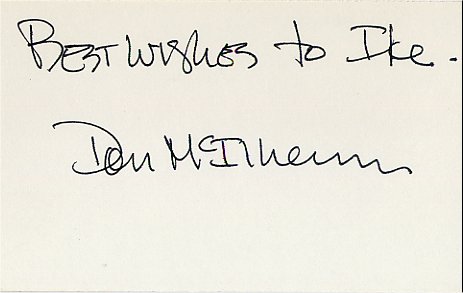 Best wishes to Ike.
Don McIlhenny